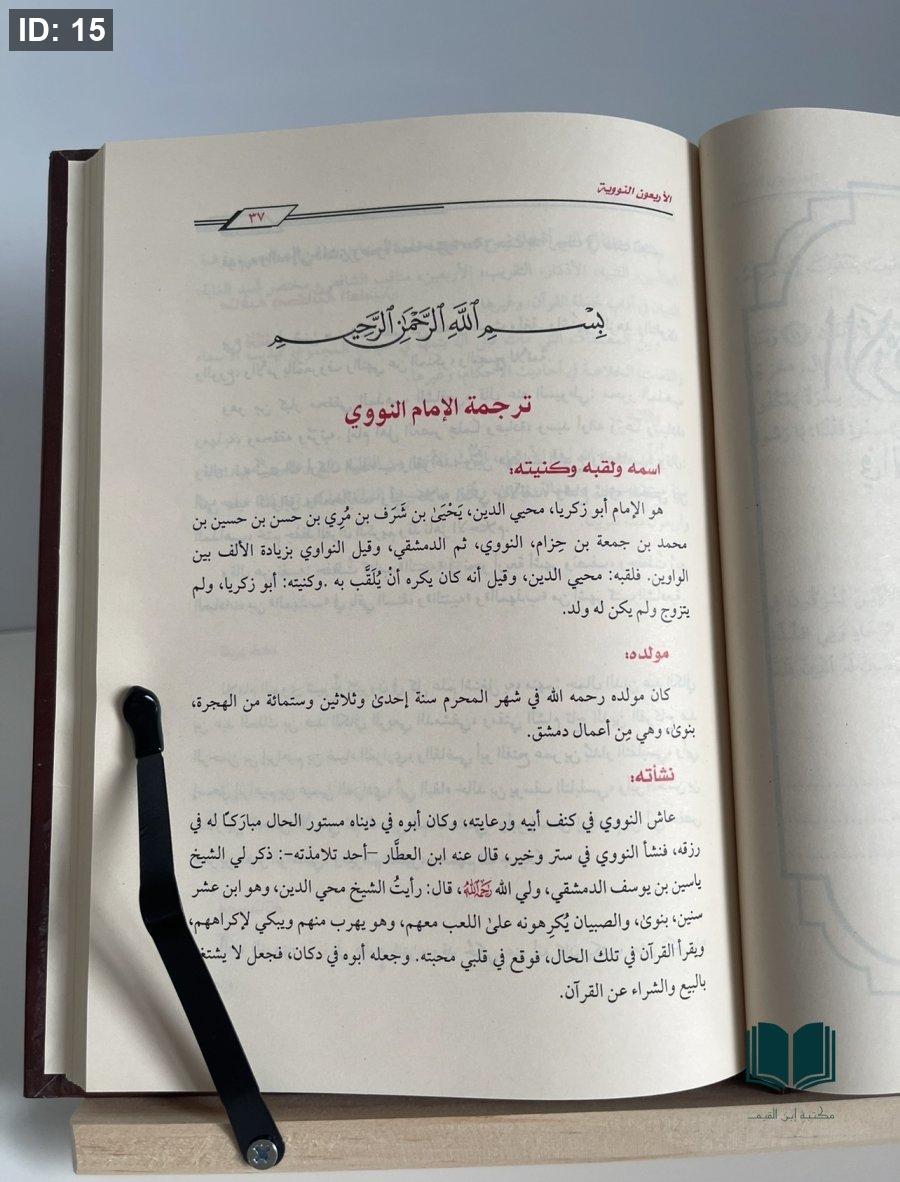 ID: 15
الأربعون النووية
٣٧
بِسْمِ اللَّهِ الرَّحْمَٰنِ الرَّحِيمِ
ترجمة الإمام النووي
اسمه ولقبه وكنيته:
هو الإمام أبو زكريا، محيي الدين، يَحْيَىٰ بن شَرَف بن مُرِي بن حسن بن حسين بن
محمد بن جمعة بن حِزام، النووي، ثم الدمشقي، وقيل النواوي بزيادة الألف بين
الواوين. فلقبه: محيي الدين، وقيل أنه كان يكره أنْ يُلَقَّب به .وكنيته: أبو زكريا، ولم
يتزوج ولم يكن له ولد.
مولده:
كان مولده رحمه الله في شهر المحرم سنة إحدىٰ وثلاثين وستمائة من الهجرة،
بنوىٰ، وهي مِن أعمال دمشق.
نشأته:
عاش النووي في كنف أبيه ورعايته، وكان أبوه في ديناه مستور الحال مبارَكًا له في
رزقه، فنشأ النووي في ستر وخير، قال عنه ابن العطَّار –أحد تلامذته–: ذكر لي الشيخ
ياسين بن يوسف الدمشقي، ولي الله رَحِمَهُ ٱللَّهُ، قال: رأيتُ الشيخ محي الدين، وهو ابن عشر
سنين، بنوىٰ، والصبيان يُكرِهونه علىٰ اللعب معهم، وهو يهرب منهم ويبكي لإكراههم،
ويقرأ القرآن في تلك الحال، فوقع في قلبي محبته. وجعله أبوه في دكان، فجعل لا
بالبيع والشراء عن القرآن.
مكتبة ابن القيم